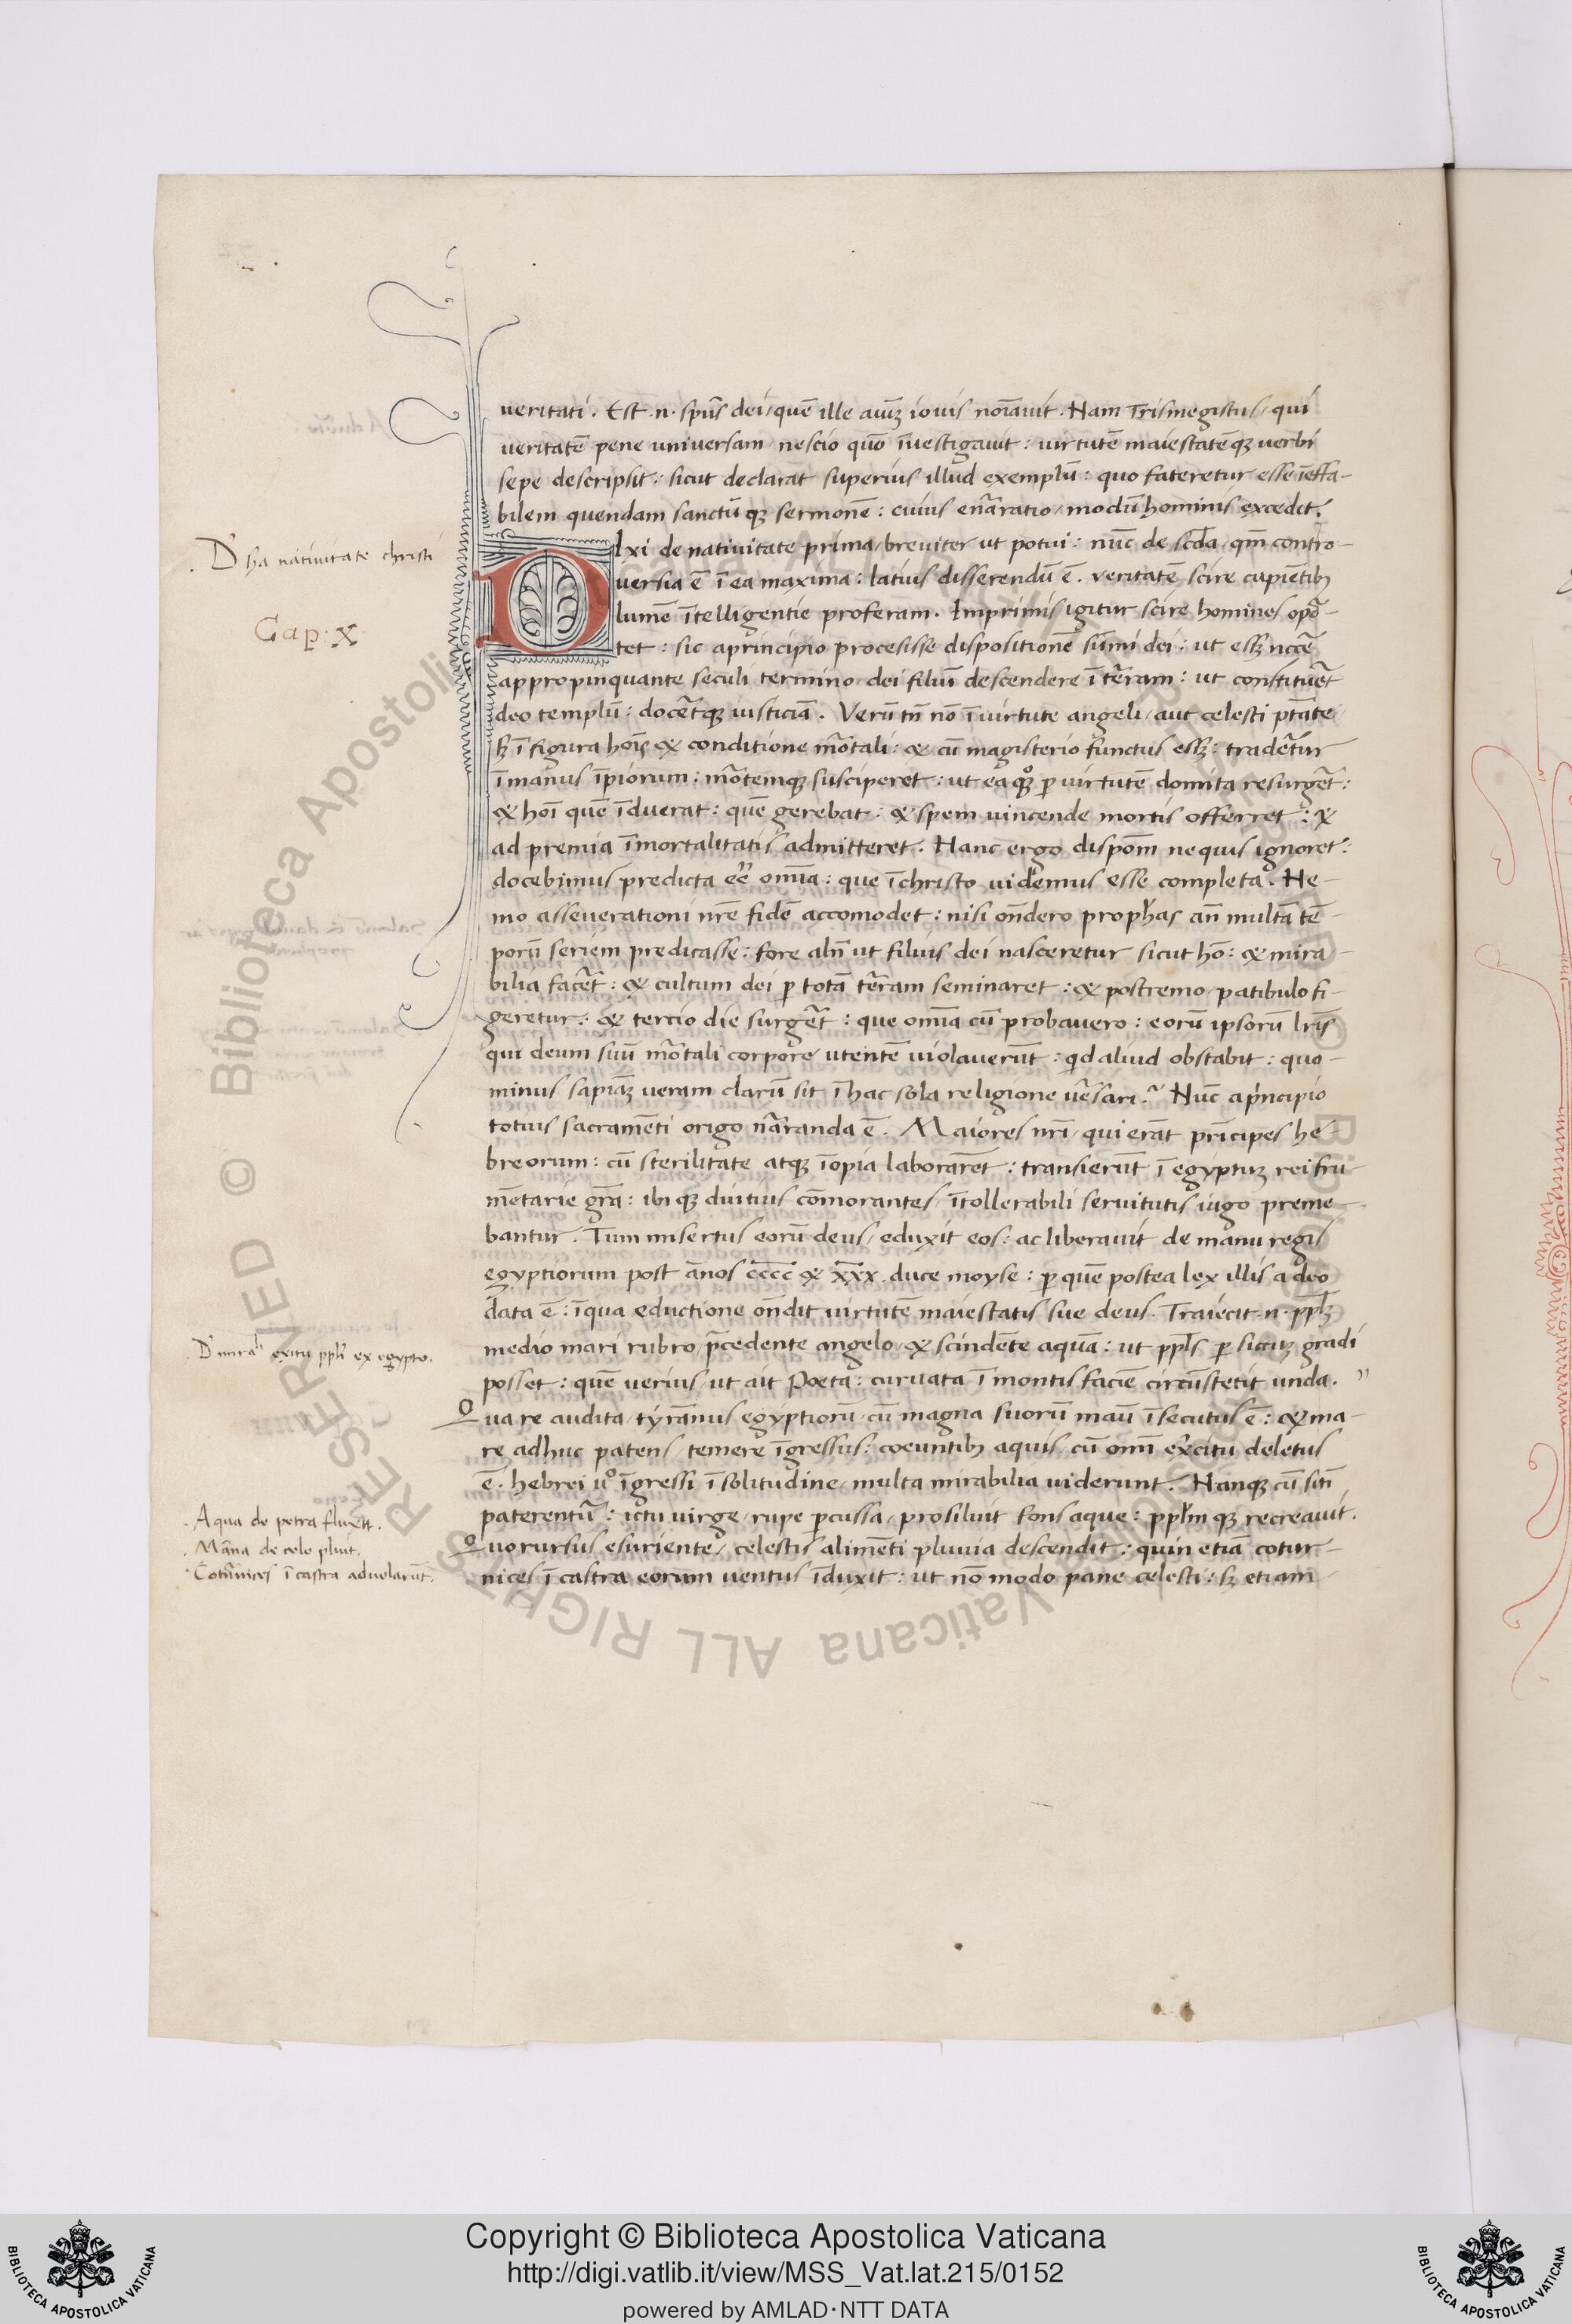 veritati. Est .n. spūs dei / quē ille aiūꝫ iovis noīavit. Nam Trismegistus / qui
veritatē pene universam / nescio quō īvestigavit : virtutē maiestatēqꝫ verbi
sepe descripsit : sicut declarat superius illud exemplū : quo fateretur esse īeffa-
bilem quendam sanctū qꝫ sermonē : cuius enārratio / modū hominis excedit.
D' sc̄ha nativitate christi
Cap: X
Dixi de nativitate prima / breviter ut potui : nūc de scd̄a / qm̄ contro-
versia ē ī ea maxima : latius disserendū ē . veritatē scire cupiētibꝫ
lumē ītelligentie proferam . Imprimis igitur scire homines opō-
tet : sic aprincipio processisse dispositionē sūmi dei : ut essꝫ nccē
appropinquante seculi termino / dei filiū descendere ī tr̄am : ut constituēt
deo templū : docētqꝫ iusticiā . Verū tn̄ nō ī virtute angeli / aut celesti ptāte
sꝫ ī figura hoīs & conditione mōtali : & cū magisterio functus essꝫ : tradēt̄ur
ī manus īpiorum : mōtemqꝫ susciperet : ut ea qꝫ ꝑ virtutē domita resurgēt :
& hoī quē īduerat : quē gerebat : & spem vincende mortis offerret : &
ad premia īmortalitatis admitteret . Hanc ergo dispōm nequis ignoret :
docebimus predicta eē omīa : que ī christo videmus esse completa . Ne-
mo asseverationi nrē fidē accomodet : nisi ōndero prophas an̄ multā tē-
porū seriem predicasse : fore aln̄ ut filius dei nasceretur sicut hō : & mira-
bilia facēt : & cultum dei ꝑ totā tēram seminaret : & postremo / patibulo fi-
geretur : & tercio die surgēt : que omīa cū probavero : eorū ipsorū lrīs
qui deum suū mōtali corpore utentē violaverūt : qd aliud obstabit : quo-
minus sapiāꝫ veram clarū sit ī hac sola religione vēsari . Nūc aprīncipio
totius sacramēti origo nārranda ē . Maiores nrī / qui erāt prīncipes he-
breorum : cū sterilitate atqꝫ īopia laborārēt : transierūt ī egyptuꝫ rei fru-
mētarie grā : ibi qꝫ diutius cōmorantes / ītollerabili servitutis iugo preme-
bantur . Tum misertus eorū deus / eduxit eos : ac liberavit de manu regis
egyptiorum post ānos cccc & xxx . duce moyse : ꝑ quē postea lex illis a deo
data ē : īqua eductione ōndit virtutē maiestatis sue deus . Traiecit .n. pplꝫ
D' mirabl̄ exitu ppli ex egypto.
medio mari rubro / p̄cedente angelo / & scindēte aquā : ut ppls ꝑ siccuꝫ gradi
posset : quē verius / ut ait Poeta : curvata ī montis faciē circūstetit unda . ”
Qua re audita / tyrānus egyptiorū / cū magna suorū maū īsecutus ē : & ma-
re adhuc patens / temere īgressus : coeuntibꝫ aquis / cū omī exercitu deletus
ē . hebrei vº īgressi ī solitudine / multa mirabilia viderunt . Nanqꝫ cū sitī
Aqua de petra fluxit.
paterentū : ictu virge / rupe ꝑcussa / prosiluit fons aque : pplm qꝫ recreavit .
Māna de celo pluit.
Quorursus esuriente / celestis alimēti pluvia descendit : quin etiā cotur-
Cotūnices ī castra advolarūt.
nices ī castra eorum ventus īduxit : ut nō modo pane celesti : sꝫ etiam
Copyright © Biblioteca Apostolica Vaticana
http://digi.vatlib.it/view/MSS_Vat.lat.215/0152
powered by AMLAD·NTT DATA